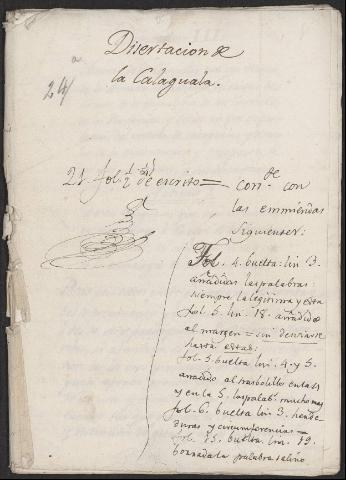 Disertacion de
la Calaguala.
24
21 fol. 1/2 de escrito = con
las emmiendas
siguientes:
Fol. 4. buelta: lin 3.
añadidas las palabras:
siempre la legitima y esta
fol. 5. lin. 18. añadido
al margen = sin desviarse
hasta estas:
fol. 5. buelta lin. 4. y 5.
añadido al trasbolillo en la 4
y en la 5. las palab. mucho mas
fol. 6. buelta lin. 3. hende-
duras y circumferencias =
fol. 15. buelta lin. 19.
borrada la palabra salino